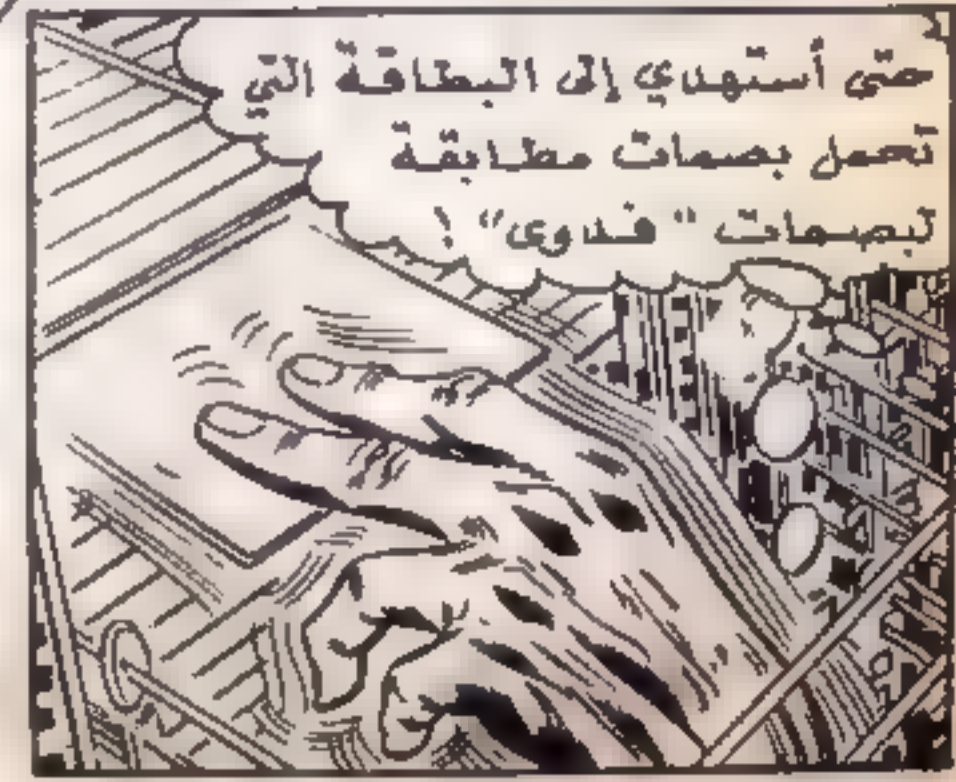 حتى أستهدي إلى البطاقة التي
تحمل بصمات مطابقة
لبصمات "فدوى" !